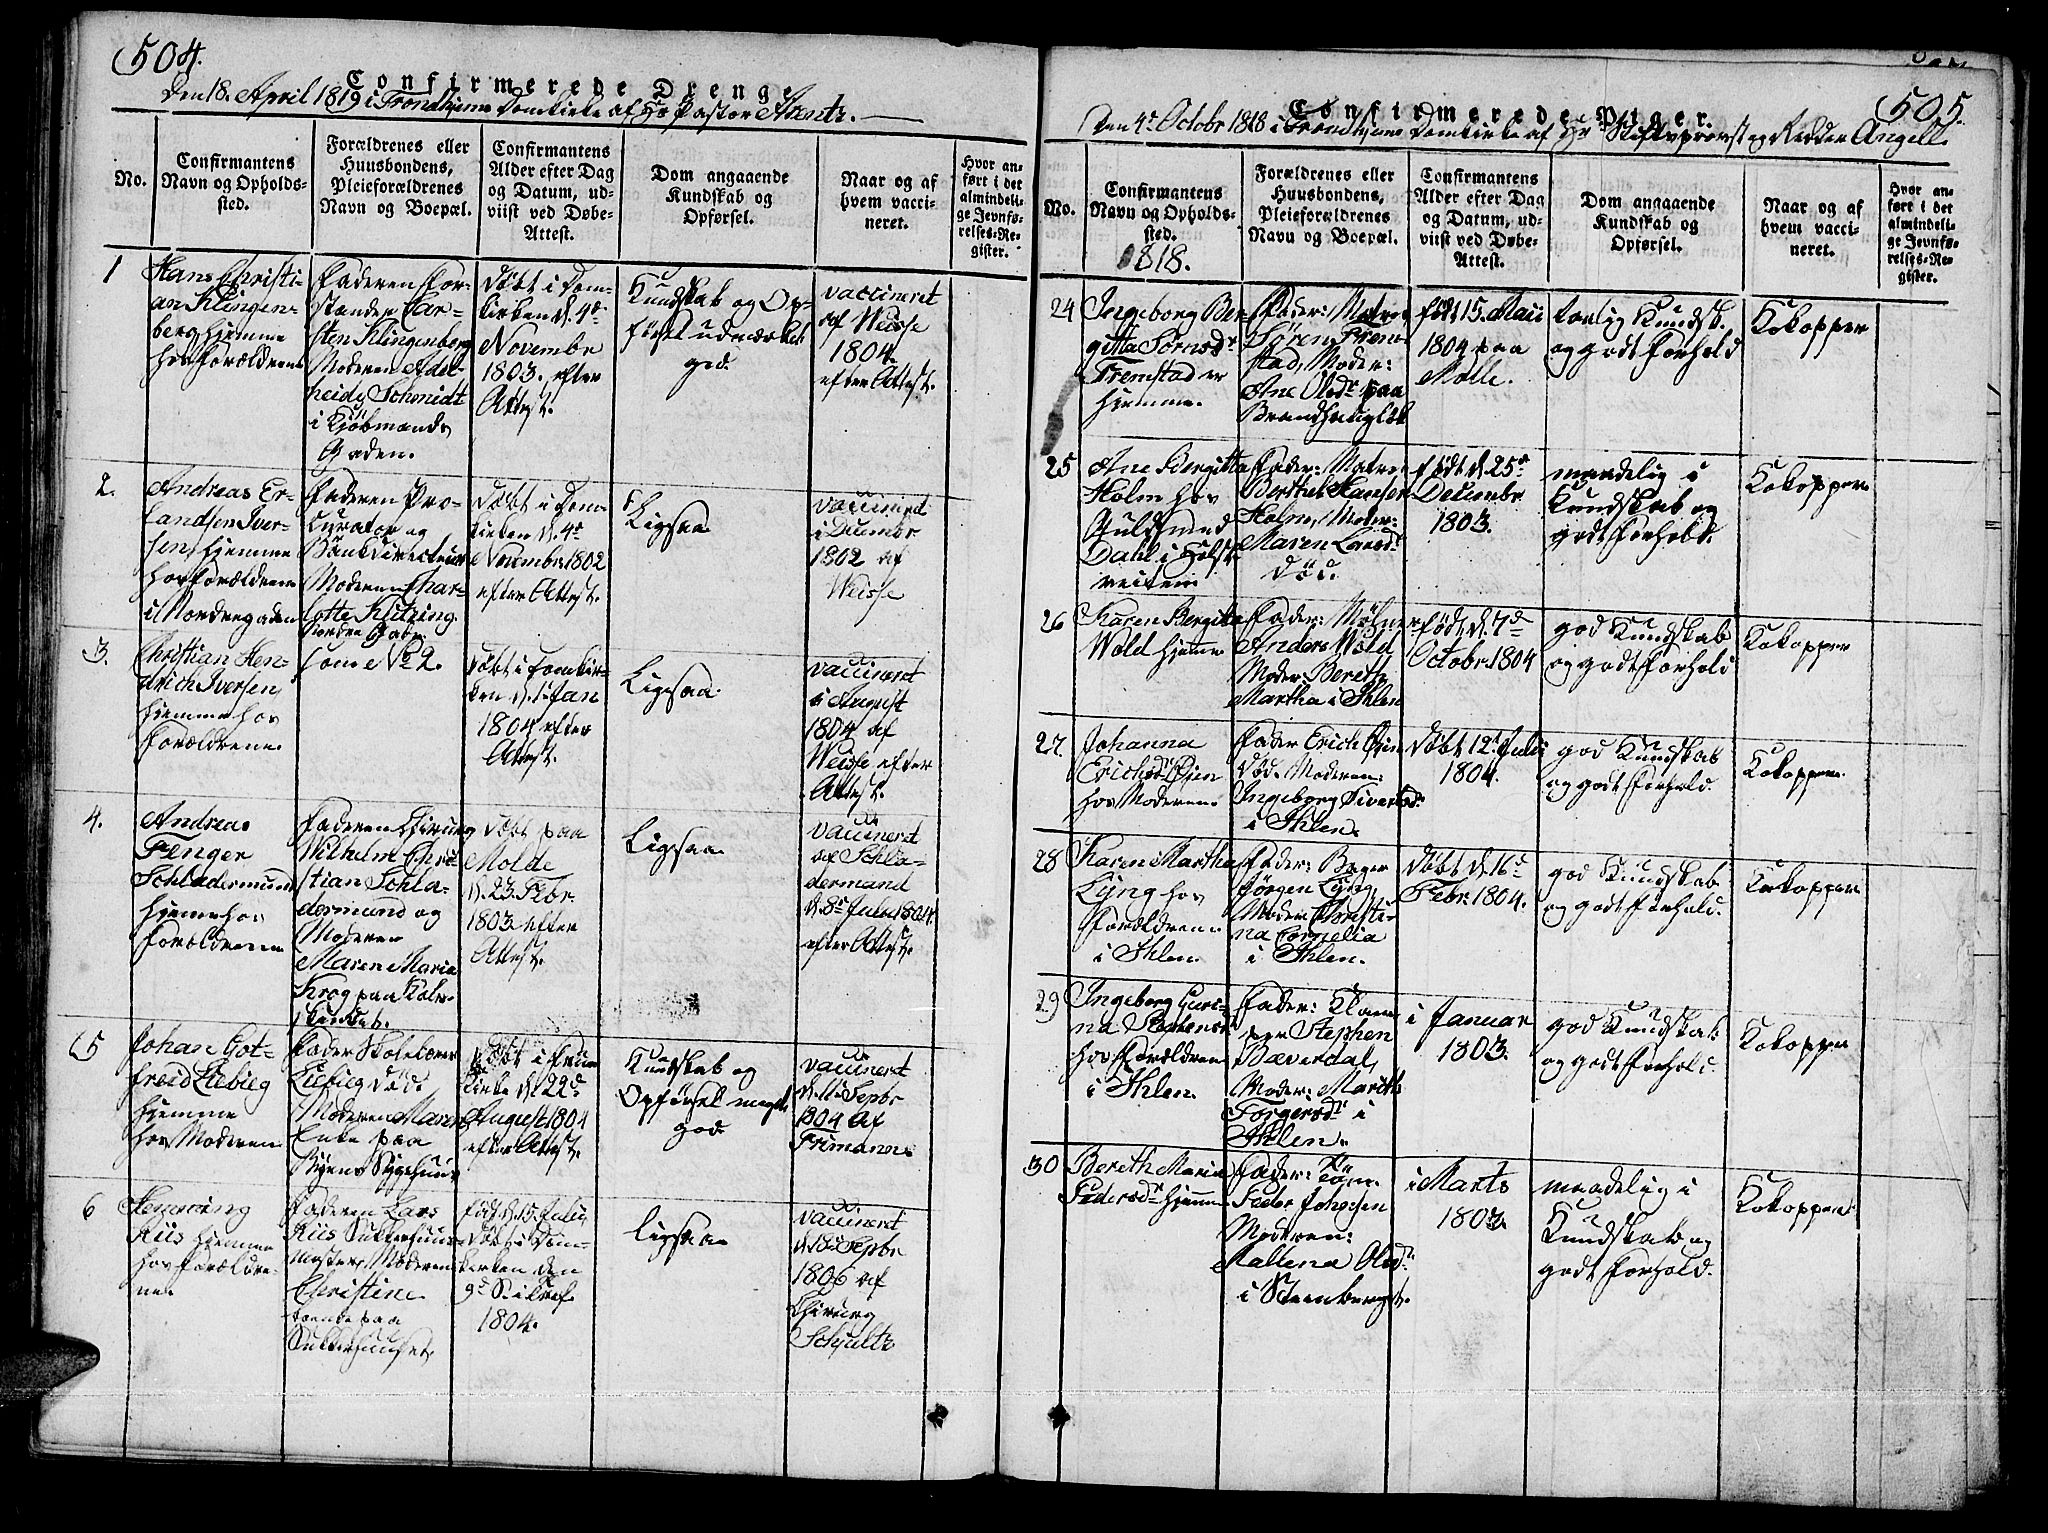 504.
Confirmerede Drenge
Den 18. April 1819 i Trondhjems Domkirke af Hr Pastor Arentz.
No.
Confirmantens
Navn og Opholds-
sted.
Forældrenes eller
Huusbondens,
Pleieforældrenes
Navn og Boepæl.
Confirmantens
Alder efter Dag
og Datum, ud-
viist ved Døbe-
Attest.
Dom angaaende
Kundskab og
Opførsel.
Naar og af
hvem vacci-
neret.
Hvor an-
ført i det
almindeli-
ge Jevnfø-
relses-Re-
gister.
1
Hans Christi-
an Klingen-
berg hjemme
hos Forældrene
Faderen For-
standen Car-
sten Klingenberg
Moderen Adel-
heide Schmidt
i Kjøbmands
Gaden.
Døbt i Dom-
kirken d. 4de
Novembr
1803. efter
Attest.
Kundskab og Op-
førsel udmærket
god.
vaccineret
af Weisse
1804.
efter Attest.
2.
Andreas Er-
landsen Iver-
sen, hjemme
hos Forældrene
i Nordregaden
Faderen Pro-
curator og
Bankdirecteur
Moderen Char-
lotte Klüring.
Nordre Gade.
Døbt i Dom-
kirken d. 4de
November 1802
efter Attest.
Ligesaa
vaccineret
i Decembr
1802 af
Weisse
3.
Christian Hen-
drich Iversen,
hjemme hos
Forældrene.
som No 2.
Døbt i Domkir-
ken d. 1 Jan
1804 efter
Attest.
Ligesaa.
vaccineret
i August
1804 af
Weisse efter
Attest.
4.
Andreas
Fenger
Schladermund
hjemme hos
Forældrene
Faderen Chirurg
Wilhelm Chri-
stian Schla-
dermund og
Moderen
Maren Maria
Krog paa Kalv-
skindet.
Døbt paa
Molde
d. 23. Febr.
1803 efter
Attest.
Ligesaa
vaccineret
af Schla-
dermand
d. 8de Julii 1804
efter Attest.
5
Johan Got-
freid Liebieg
hjemme
hos Moderen
Fader Skolelærer
Liebieg død
Moderen Maren
Enke paa
Byens Sygehuus
Døbt i Frue
Kirke d. 22d
August 1804
efter Attest.
Kundskab og
Opførsel meget
god
vaccineret
d. 11. Sepbr
1804 af
Frimann
6
Henning
Riis hjemme
hos Forældre-
ne.
Faderen Lars
Riis Sukkerhuus-
mester, Moderen
Christine
boende paa
Sukkerhuset.
født d. 15. Julii,
Døbt i Dom-
kirken den
9d
1804.
ligesaa
vaccineret
d. 18 Sepbr
1806 af
Chirurg
Schjultz
505.
Confirmerede Piger.
Den 4de Octobr 1818 i Trondhjems Domkirke af Hr Stiftsprovst og Ridder Angell.
No.
Confirmantens
Navn og Opholds-
sted.
1818.
Forældrenes eller
Huusbondens,
Pleieforældrenes
Navn og Boepæl.
Confirmantens
Alder efter Dag
og Datum, ud-
viist ved Døbe-
Attest.
Dom angaaende
Kundskab og
Opførsel.
Naar og af
hvem vacci-
neret.
Hvor an-
ført i det
almindeli-
ge Jevnfø-
relses-Re-
gister.
24
Ingeborg Ber-
gitta Sørensdr
Fremstad er
hjemme.
Fader: Matros
Søren Frem-
stad, Moder:
Ane Olsdr paa
født 15. Maii
1804 paa
Molle.
Kundsk.
og godt Forhold
Kokopper
25
Ane Bergitta
Holm hos
Guldsmed
Dahl i
veiten
Fader: Matros
Berthel Hansen
Holm, Moder:
Maren Larsdr
død.
født d. 25de
Decembr
1803.
maadelig i
Kundskab og
godt Forhold.
Kokopper
26
Karen Bergitta
Wold hjemme
Fader: Mølner
Anders Wold
Moder Bereth
Martha i Ihlen
født d. 7d
Octobr. 1804
god Kundskab
og godt Forhold
Kokopper
27.
Johanna
Erichsdr Øien
hos Moderen.
Fader Erich Øien
død. Moderen:
Ingeborg Siversdr
i Ihlen.
Døbt 12. Julii
1804.
god Kundskab
og godt Forhold.
Kokopper.
28
Karen Martha
Lyng hos
Forældrene
i Ihlen.
Fader: Bager
Jørgen Lyng,
Moder Christi-
na Cornelia
i Ihlen.
Døbt d. 16d
Febr. 1804.
god Kundskab
og godt Forhold.
Kokopper
29
Ingeborg Guri-
na Stephensdr
hos Forældrene
i Ihlen.
Fader: Klam-
per Stephen
Bæverdal,
Moder: Marith
Torgersdr i
Ihlen.
i Januar
1803.
god Kundskab
og godt Forhold.
Kokopper
30
Bereth Maria
Pedersdr hjemme
Fader:
Peder Johnsen
Moderen:
Mallena Olsdr
i Steenberget.
i Marts
1803.
maadelig i
Kundskab og
godt Forhold.
Kokopper